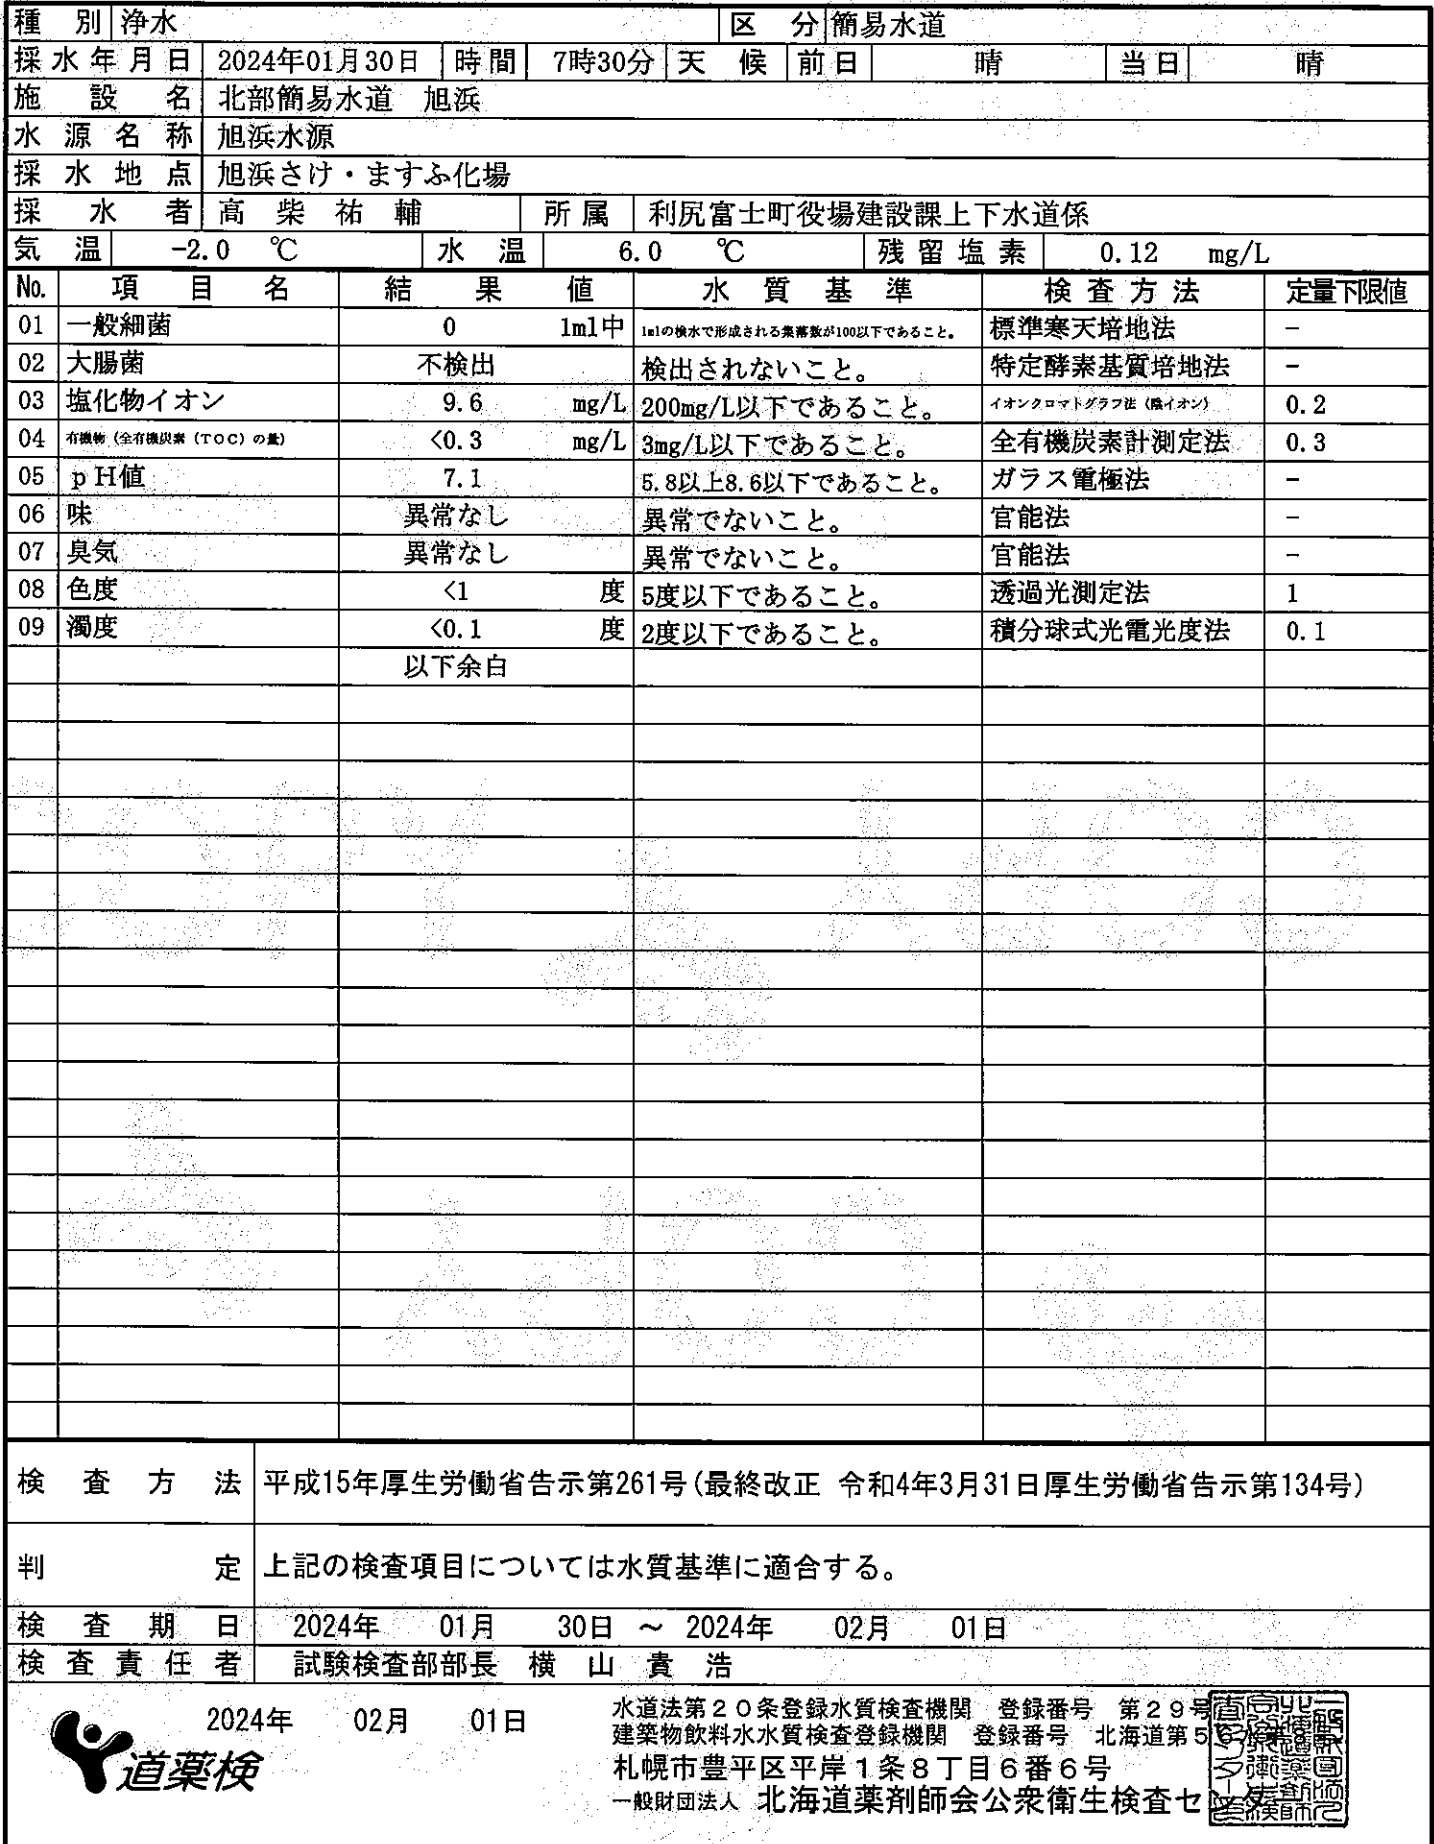 種 別 浄水 区 分 簡易水道
採水年月日 2024年01月30日 時間 7時30分 天 候 前日 晴 当日 晴
施 設 名 北部簡易水道 旭浜
水 源 名 称 旭浜水源
採 水 地 点 旭浜さけ・ますふ化場
採 水 者 高 柴 祐 輔 所属 利尻富士町役場建設課上下水道係
気 温 -2.0 ℃ 水 温 6.0 ℃ 残留塩素 0.12 mg/L
No. 項 目 名 結 果 値 水 質 基 準 検査方法 定量下限値
01 一般細菌 0 1ml中 1mlの検水で形成される集落数が100以下であること。 標準寒天培地法 -
02 大腸菌 不検出 検出されないこと。 特定酵素基質培地法 -
03 塩化物イオン 9.6 mg/L 200mg/L以下であること。 イオンクロマトグラフ法（陰イオン） 0.2
04 有機物（全有機炭素（TOC）の量） <0.3 mg/L 3mg/L以下であること。 全有機炭素計測定法 0.3
05 pH値 7.1 5.8以上8.6以下であること。 ガラス電極法 -
06 味 異常なし 異常でないこと。 官能法 -
07 臭気 異常なし 異常でないこと。 官能法 -
08 色度 <1 度 5度以下であること。 透過光測定法 1
09 濁度 <0.1 度 2度以下であること。 積分球式光電光度法 0.1
以下余白
検 査 方 法 平成15年厚生労働省告示第261号(最終改正 令和4年3月31日厚生労働省告示第134号)
判 定 上記の検査項目については水質基準に適合する。
検 査 期 日 2024年 01月 30日 ～ 2024年 02月 01日
検査責任者 試験検査部部長 横 山 貴 浩
2024年 02月 01日
道薬検
水道法第２０条登録水質検査機関 登録番号 第２９号
建築物飲料水水質検査登録機関 登録番号 北海道第５６
札幌市豊平区平岸１条８丁目６番６号
一般財団法人 北海道薬剤師会公衆衛生検査センター